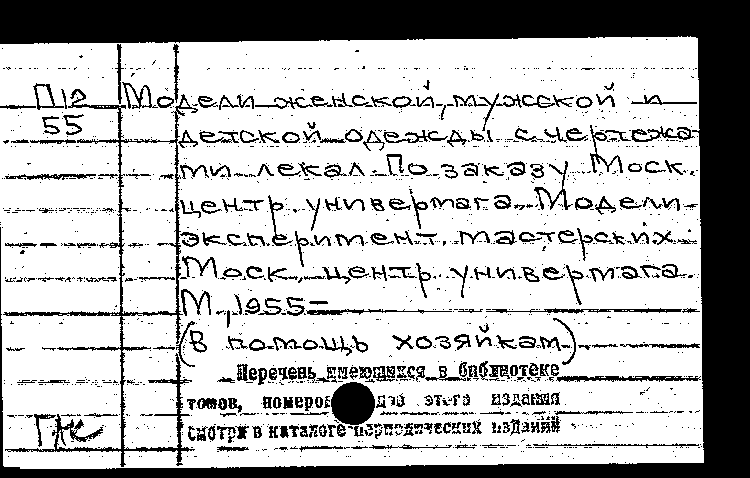 П12 Модели женской, мужской и
55 детской одежды с чертежа-
ми лекал. По заказу Моск.
центр. универмага. Модели
эксперимент. мастерских
Моск. центр. универмага
М., 1955–
(В помощь хозяйкам).
Перечень имеющихся в библиотеке
томов, номеров этого издания
смотри в каталоге периодических изданий